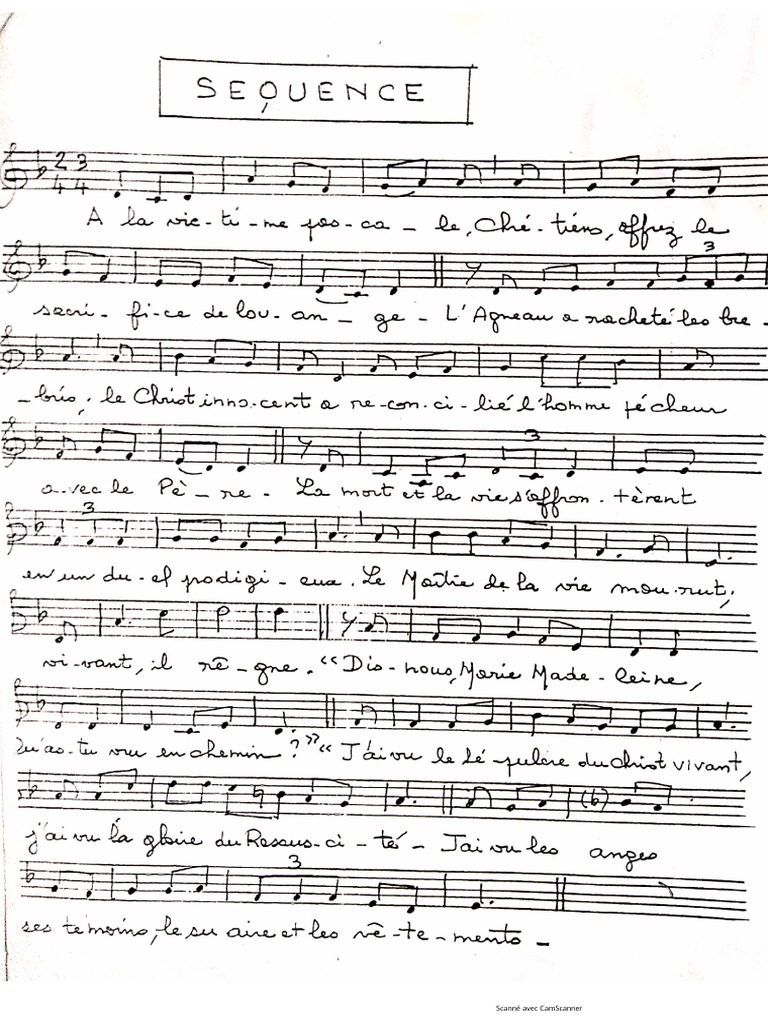 SEQUENCE
2 3
4 4
A la vic-ti-me pas-ca-le, Chré-tiens, offrez le
3
sacri-fi-ce de lou-an-ge- L'Agneau a racheté les bre-
-bis; le Christ inno-cent a re-con-ci-lié l'homme pécheur
3
a-vec le Pè-re- La mort et la vie s'affron-tèrent
3
en un du-el prodigi-eux. Le Maître de la vie mou-rut;
vi-vant, il rè-gne. "Dis-nous, Marie Made-leine,
Qu'as-tu vu en chemin ?" "J'ai vu le sé-pulcre du Christ vivant,
j'ai vu la gloire du Ressus-ci-té- J'ai vu les anges
3
ses témoins, le su aire et les vê-te-ments-
Scanné avec CamScanner